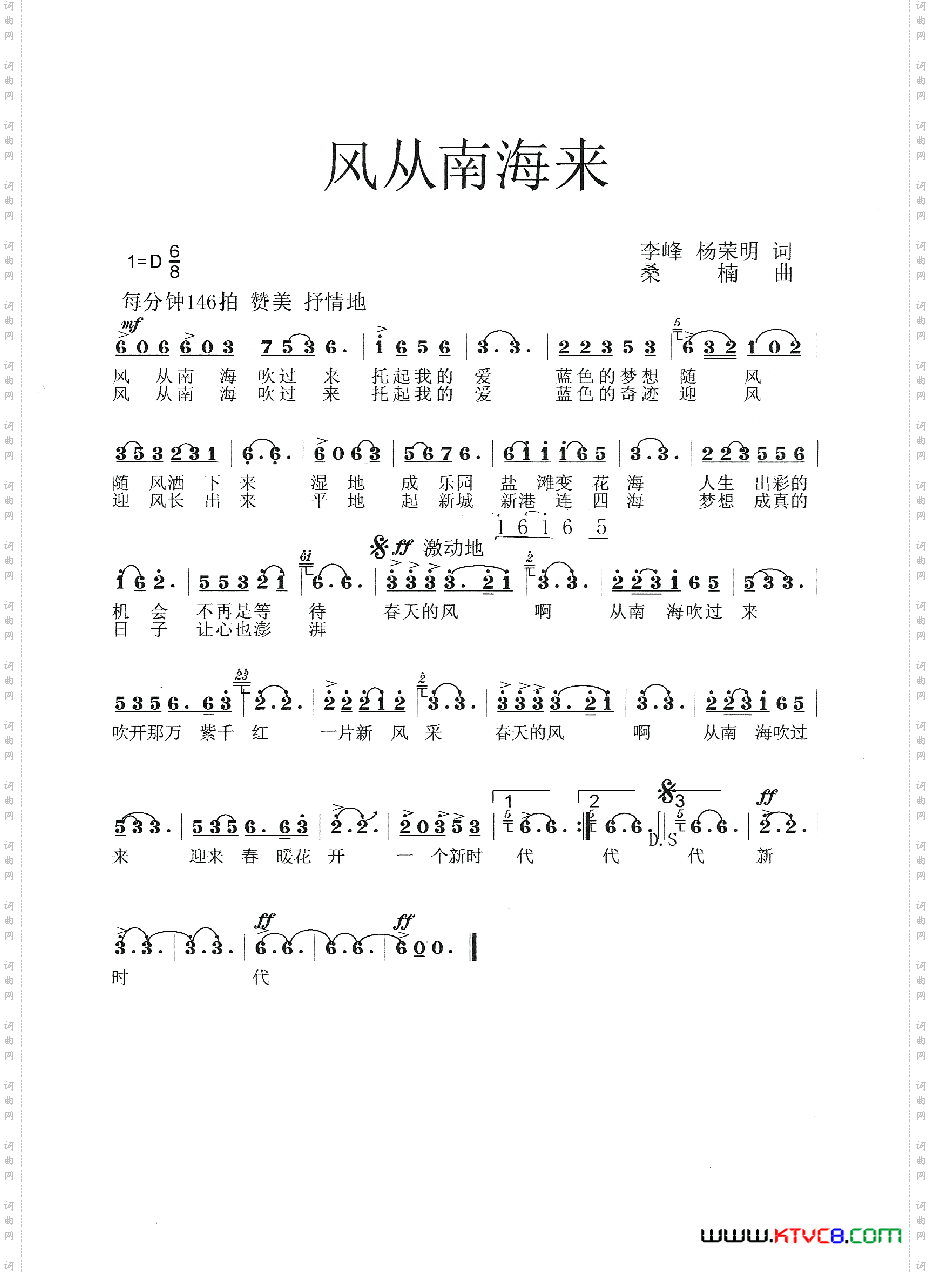 风从南海来
1=D 6/8
李峰 杨荣明 词
桑 楠 曲
每分钟146拍 赞美 抒情地
mf
606 603 7536. i656 3.3. 222353 632 102
风 从南 海 吹过 来 托起我的 爱 蓝色的梦想 随 风
风 从南 海 吹过 来 托起我的 爱 蓝色的奇迹 迎 风
353231 6.6. 6063 5676. 6iiii65 3.3. 223556
随 风洒 下 来 湿 地 成 乐园 盐 滩变 花 海 人生 出彩的
迎 风长 出 来 平 地 起 新城 新港 连 四 海 梦想 成真的
i 6 i 6 5
ff 激动地
i62. 55321 6.6. 3333.2i 3.3. 223i65 533.
机 会 不再是等 待 春天的风 啊 从南 海吹过 来
日 子 让心也澎 湃
5356.63 2.2. 222i2 3.3. 3333.2i 3.3. 223i65
吹开那万 紫千 红 一片新 风 采 春天的风 啊 从南 海吹过
1 2 3 ff
533. 5356.63 2.2. 20353 6.6. :‖ 6.6. D.S 6.6. 2.2.
来 迎来 春 暖花 开 一 个新时 代 代 代 新
ff ff
3.3. 3.3. 3.3. 6.6. 6.6. 600.
时 代
WWW.KTVC8.COM
词曲网